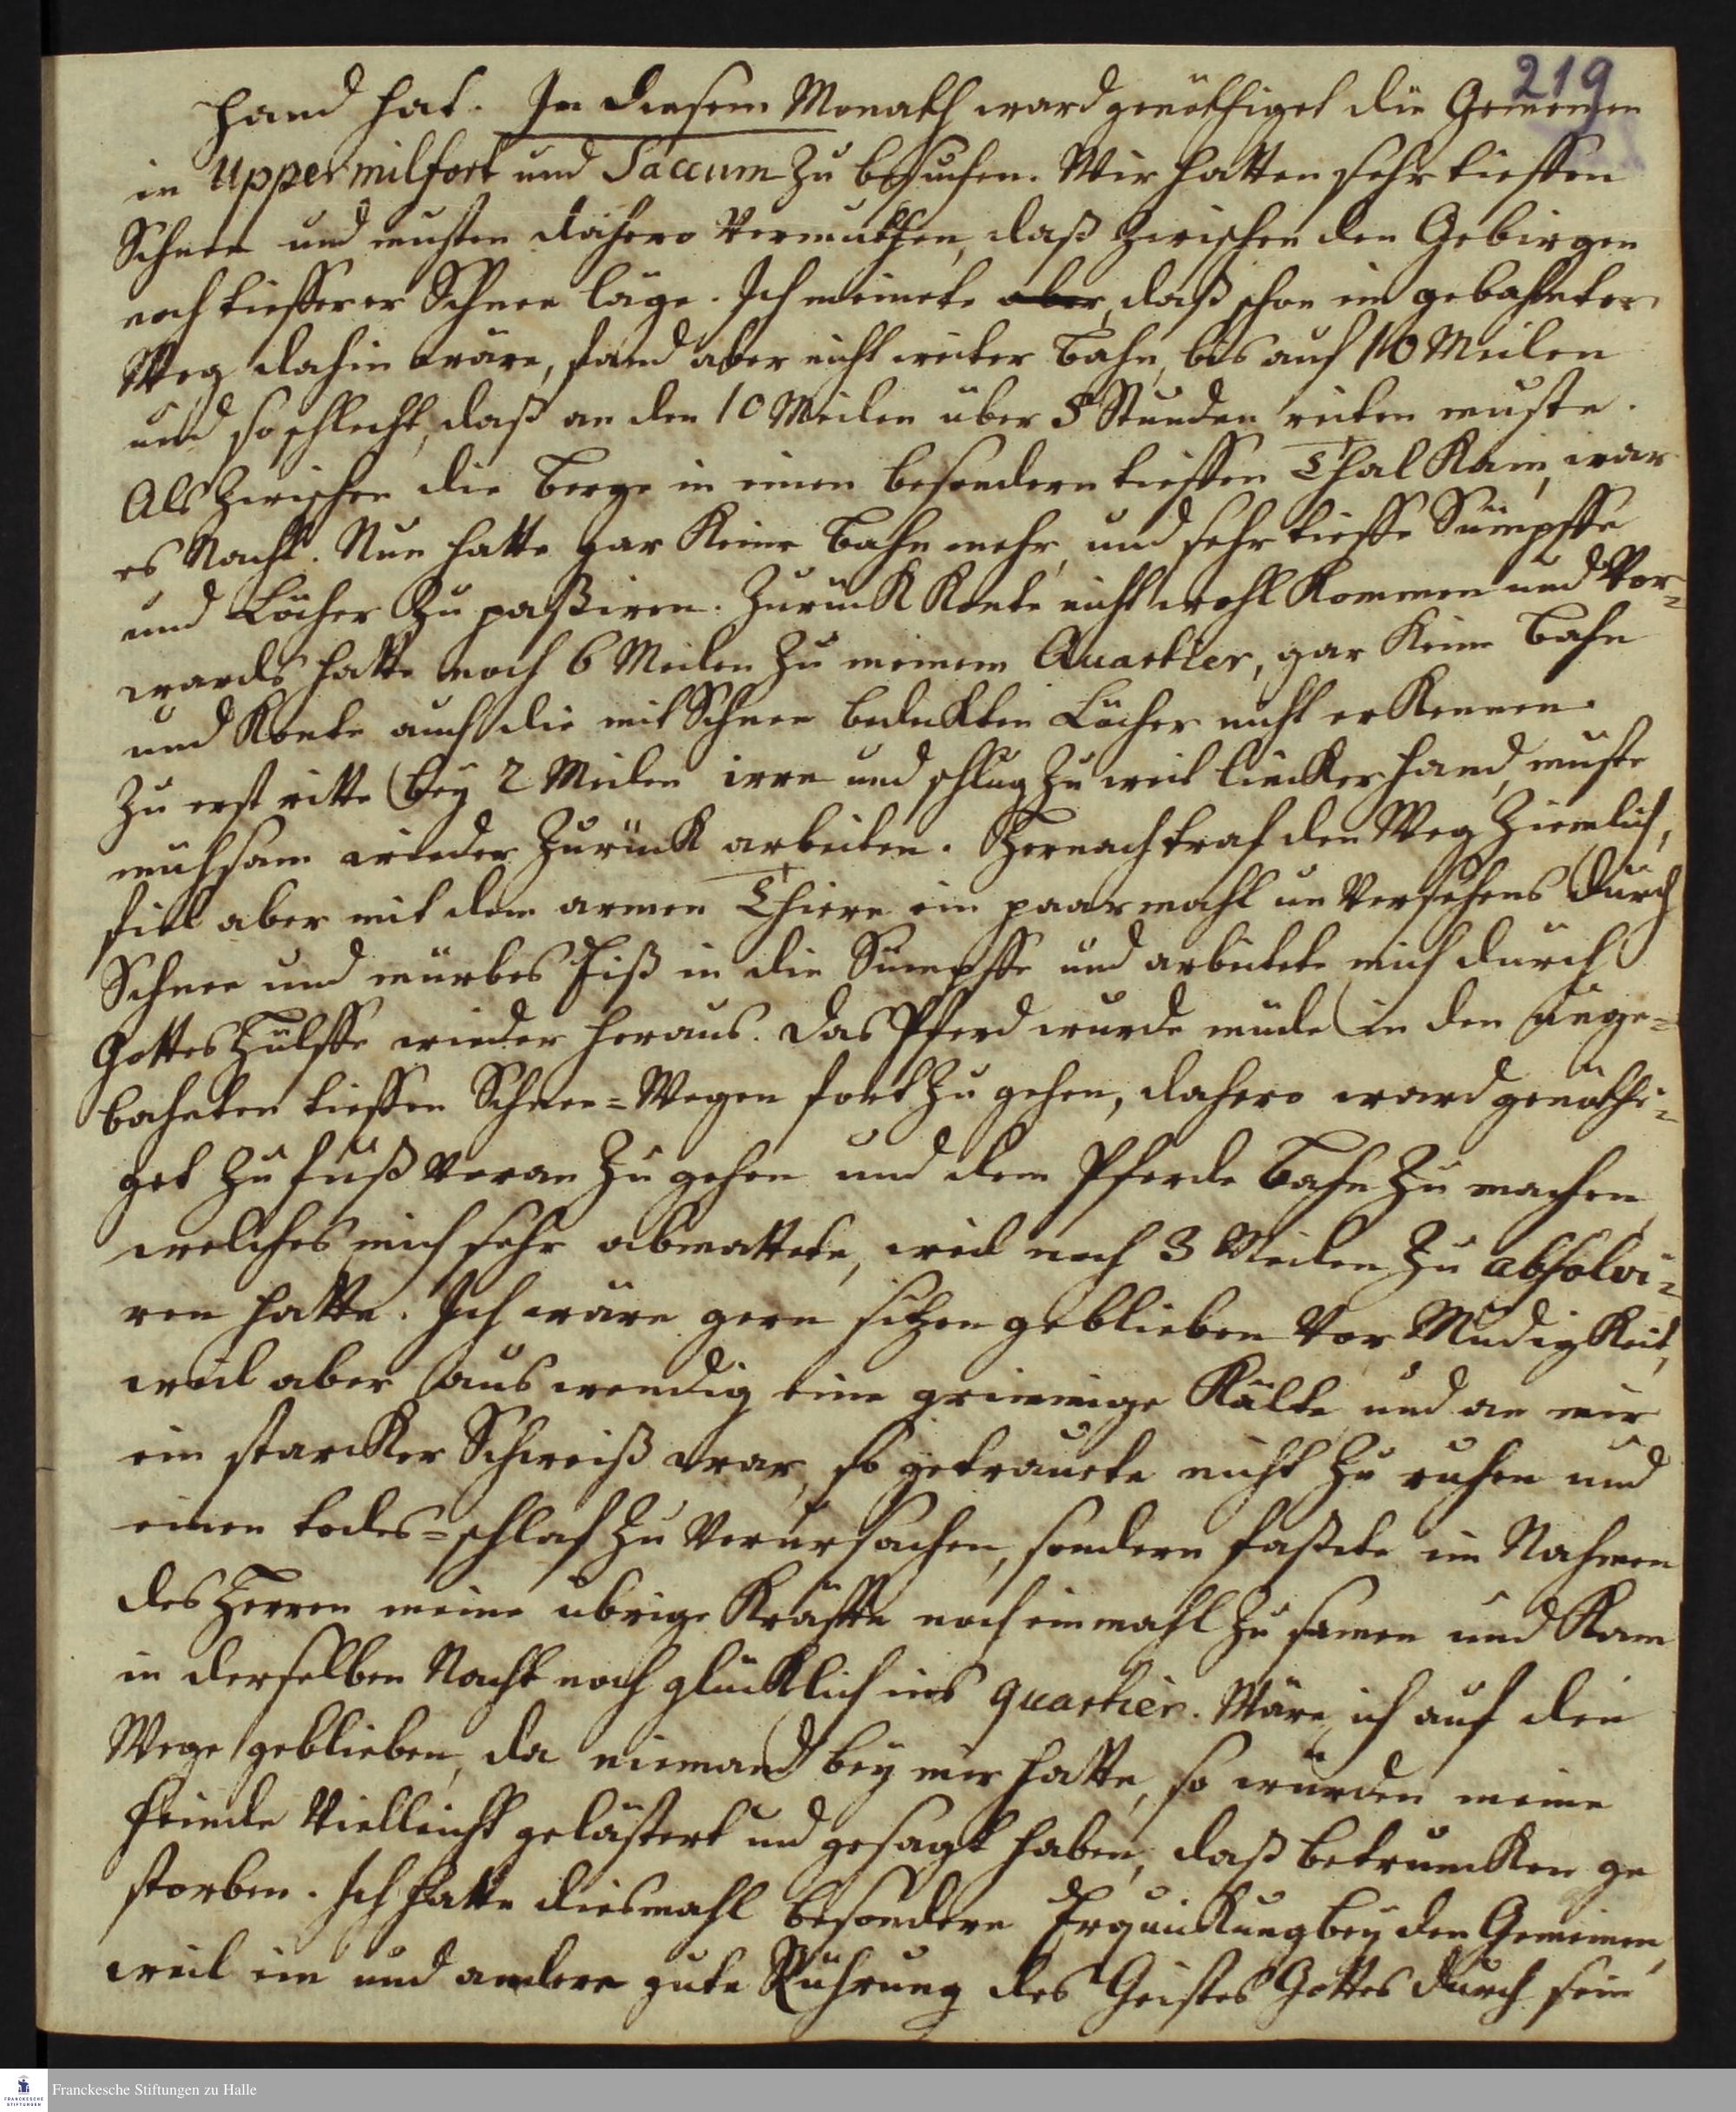 219
Hand hat. In diesem Monath ward genöthiget die Gemeinen
in Uppermilfort und Saccum zu besuchen. Wir hatten sehr tieffen
Schnee und musten dahero vermuthen, daß zwischen den Gebirgen
noch tiefferer Schnee läge. Ich meinete aber, daß schon ein gebahnter
Weg dahin wäre, fand aber nicht weiter Bahn, bis auf 10 Meilen
und so schlecht, daß an den 10 Meilen über 5 Stunden reiten muste.
Als zwischen die Berge in einen besondern tieffen Thal kam, war
es Nacht. Nun hatte gar keine Bahn mehr, und sehr tieffe Sümpffe
und Löcher zu paßiren. Zurück konte nicht wohl kommen und vor-
warts hatte noch 6 Meilen zu meinem Quartier, gar keine Bahn
und konte auch die mit Schnee bedeckten Löcher nicht erkennen.
Zu erst ritte bey 2 Meilen irre und schlug zu weit lincker Hand, muste
muhsam wieder zurück arbeiten. Hernach traf den Weg ziemlich,
fiel aber mit dem armen Thiere ein paarmahl unversehens durch
Schnee und mürbes Eiß in die Sümpffe und arbeitete mich durch
Gottes Hülffe wieder heraus. Das Pferd wurde müde in den unge-
bahnten tieffen Schnee-Wegen fort zu gehen, dahero ward genöthi-
get zu Fuß voran zu gehen und dem Pferde Bahn zu machen,
welches mich sehr abmattete, weil noch 3 Meilen zu absolvi-
ren hatte. Ich wäre gern sitzen geblieben vor Müdigkeit,
weil aber auswendig eine grimmige Kälte und an mir
ein starcker Schweiß war, so getrauete nicht zu ruhen und
einen todes-schlaf zu verursachen, sondern faßete im Nahmen
des Herren meine übrige Kräffte noch einmahl zusamen und kam
in derselben Nacht noch glücklich ins quartier. Wäre ich auf dem
Wege geblieben, da niemand bey mir hatte, so würden meine
Feinde vielleicht gelästert und gesagt haben, daß betruncken ge
storben. Ich hatte diesmahl besondere Erquickung bey den Gemeinen,
weil ein und andere gute Rührung des Geistes Gottes durch sein
Franckesche Stiftungen zu Halle
FRANCKESCHE
STIFTUNGEN